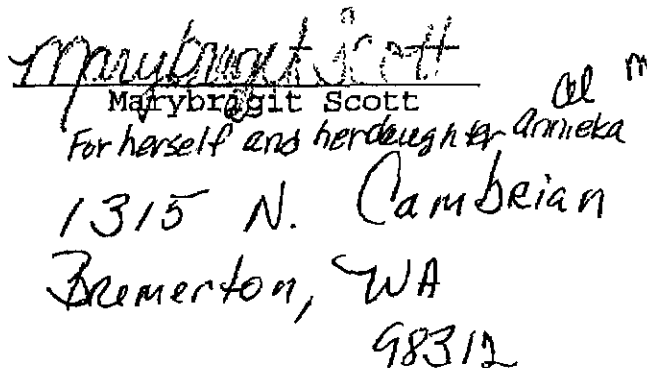 Marybrigit Scott
Marybragit Scott
For herself and her daughter Annieka
1315 N. Cambrian
Bremerton, WA
98312